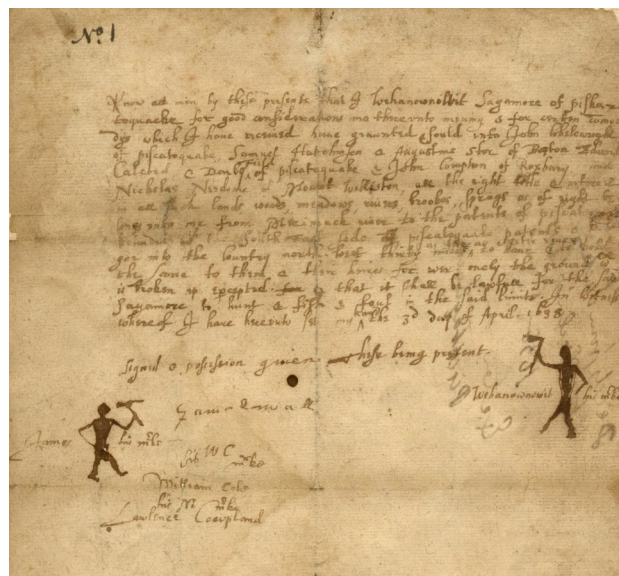 No 1
Know all men by these presents that I Wehanownowit Sagamore of piskat
toquacke for good considerations me therevnto mouing & for certen comod
dys which I have receiued have graunted & sould vnto John Whelewright
of piscatoquake, Samuel Hutchinson & Augustine Stor of Boston Edward
Calcord & Darby Field of piscatoquake & John Compton of Roxbury and
Nicholas Nedome of Mount Walliston, all the right title & interest
in all such lands woods meadows riuers brooks springs as of right be
long vnto me from Merimack riuer to the patents of piscatoquake
bounded South side of piscatoquake patents &
goe into the Country north west thirty miles as far as
the same to them & their heires for euer onely the ground
is broken up excepted. & that it shall be lawfull for the said
Sagamore to hunt & fish & foul in the said limits. In Witness
whereof I have hereunto set my hand the 3d day of April. 1638
Signed & possession giuen. These being present.
James
his mke
James Wall
Wehanownowit his mke
his W C mke
William Cole
his M mke
Lawrence Cowpland